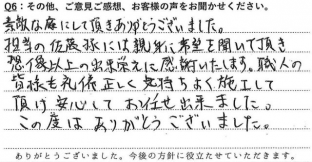 Q6：その他、ご意見ご感想、お客様の声をお聞かせください。
素敵な庭にして頂きありがとうございました。
担当の佐藤様には親身に希望を聞いて頂き
想像以上の出来栄えに感謝いたします。職人の
皆様も礼儀正しく気持ちよく施工して
頂け安心してお任せ出来ました。
この度はありがとうございました。
ありがとうございました。今後の方針に役立たせていただきます。